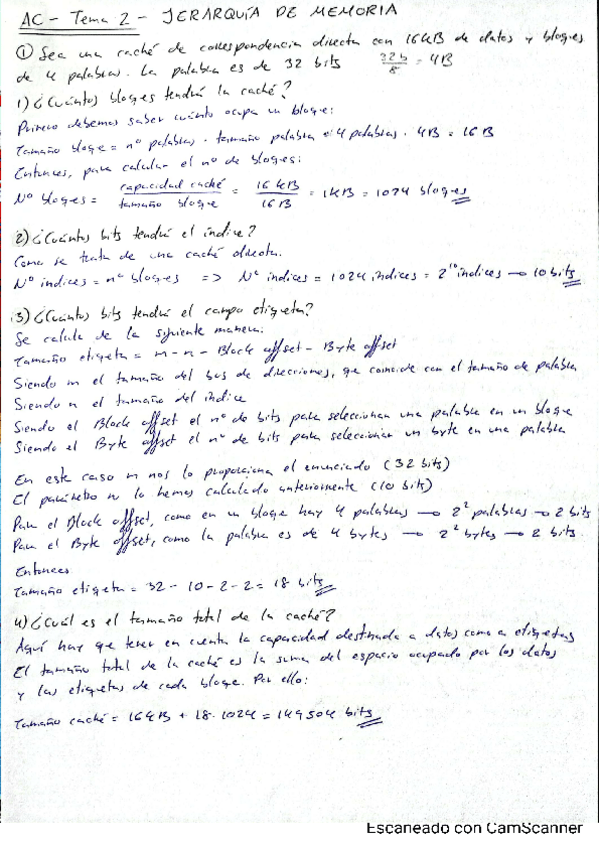 AC - Tema 2 - JERARQUÍA DE MEMORIA
① Sea una caché de correspondencia directa con 16kB de datos y bloques
de 4 palabras. La palabra es de 32 bits 32b/8 = 4B
1) ¿Cuántos bloques tendrá la caché?
Primero debemos saber cuánto ocupa un bloque:
Tamaño bloque = nº palabras · tamaño palabra = 4 palabras · 4B = 16B
Entonces, para calcular el nº de bloques:
Nº bloques = capacidad caché / tamaño bloque = 16kB / 16B = 1kB = 1024 bloques
2) ¿Cuántos bits tendrá el índice?
Como se trata de una caché directa.
Nº indices = nº bloques => Nº indices = 1024 indices = 2^10 indices → 10 bits
3) ¿Cuántos bits tendrá el campo etiqueta?
Se calcula de la siguiente manera:
Tamaño etiqueta = m - n - Block offset - Byte offset
Siendo m el tamaño del bus de direcciones, que coincide con el tamaño de palabra
Siendo n el tamaño del índice
Siendo el Block offset el nº de bits para seleccionar una palabra en un bloque
Siendo el Byte offset el nº de bits para seleccionar un byte en una palabra
En este caso m nos lo proporciona el enunciado (32 bits)
El parámetro n lo hemos calculado anteriormente (10 bits)
Para el Block offset, como en un bloque hay 4 palabras → 2² palabras → 2 bits
Para el Byte offset, como la palabra es de 4 bytes → 2² bytes → 2 bits.
Entonces
Tamaño etiqueta = 32 - 10 - 2 - 2 = 18 bits
4) ¿Cuál es el tamaño total de la caché?
Aquí hay que tener en cuenta la capacidad destinada a datos como a etiquetas
El tamaño total de la caché es la suma del espacio ocupado por los datos
y las etiquetas de cada bloque. Por ello:
Tamaño caché = 16kB + 18 · 1024 = 149504 bits
Escaneado con CamScanner